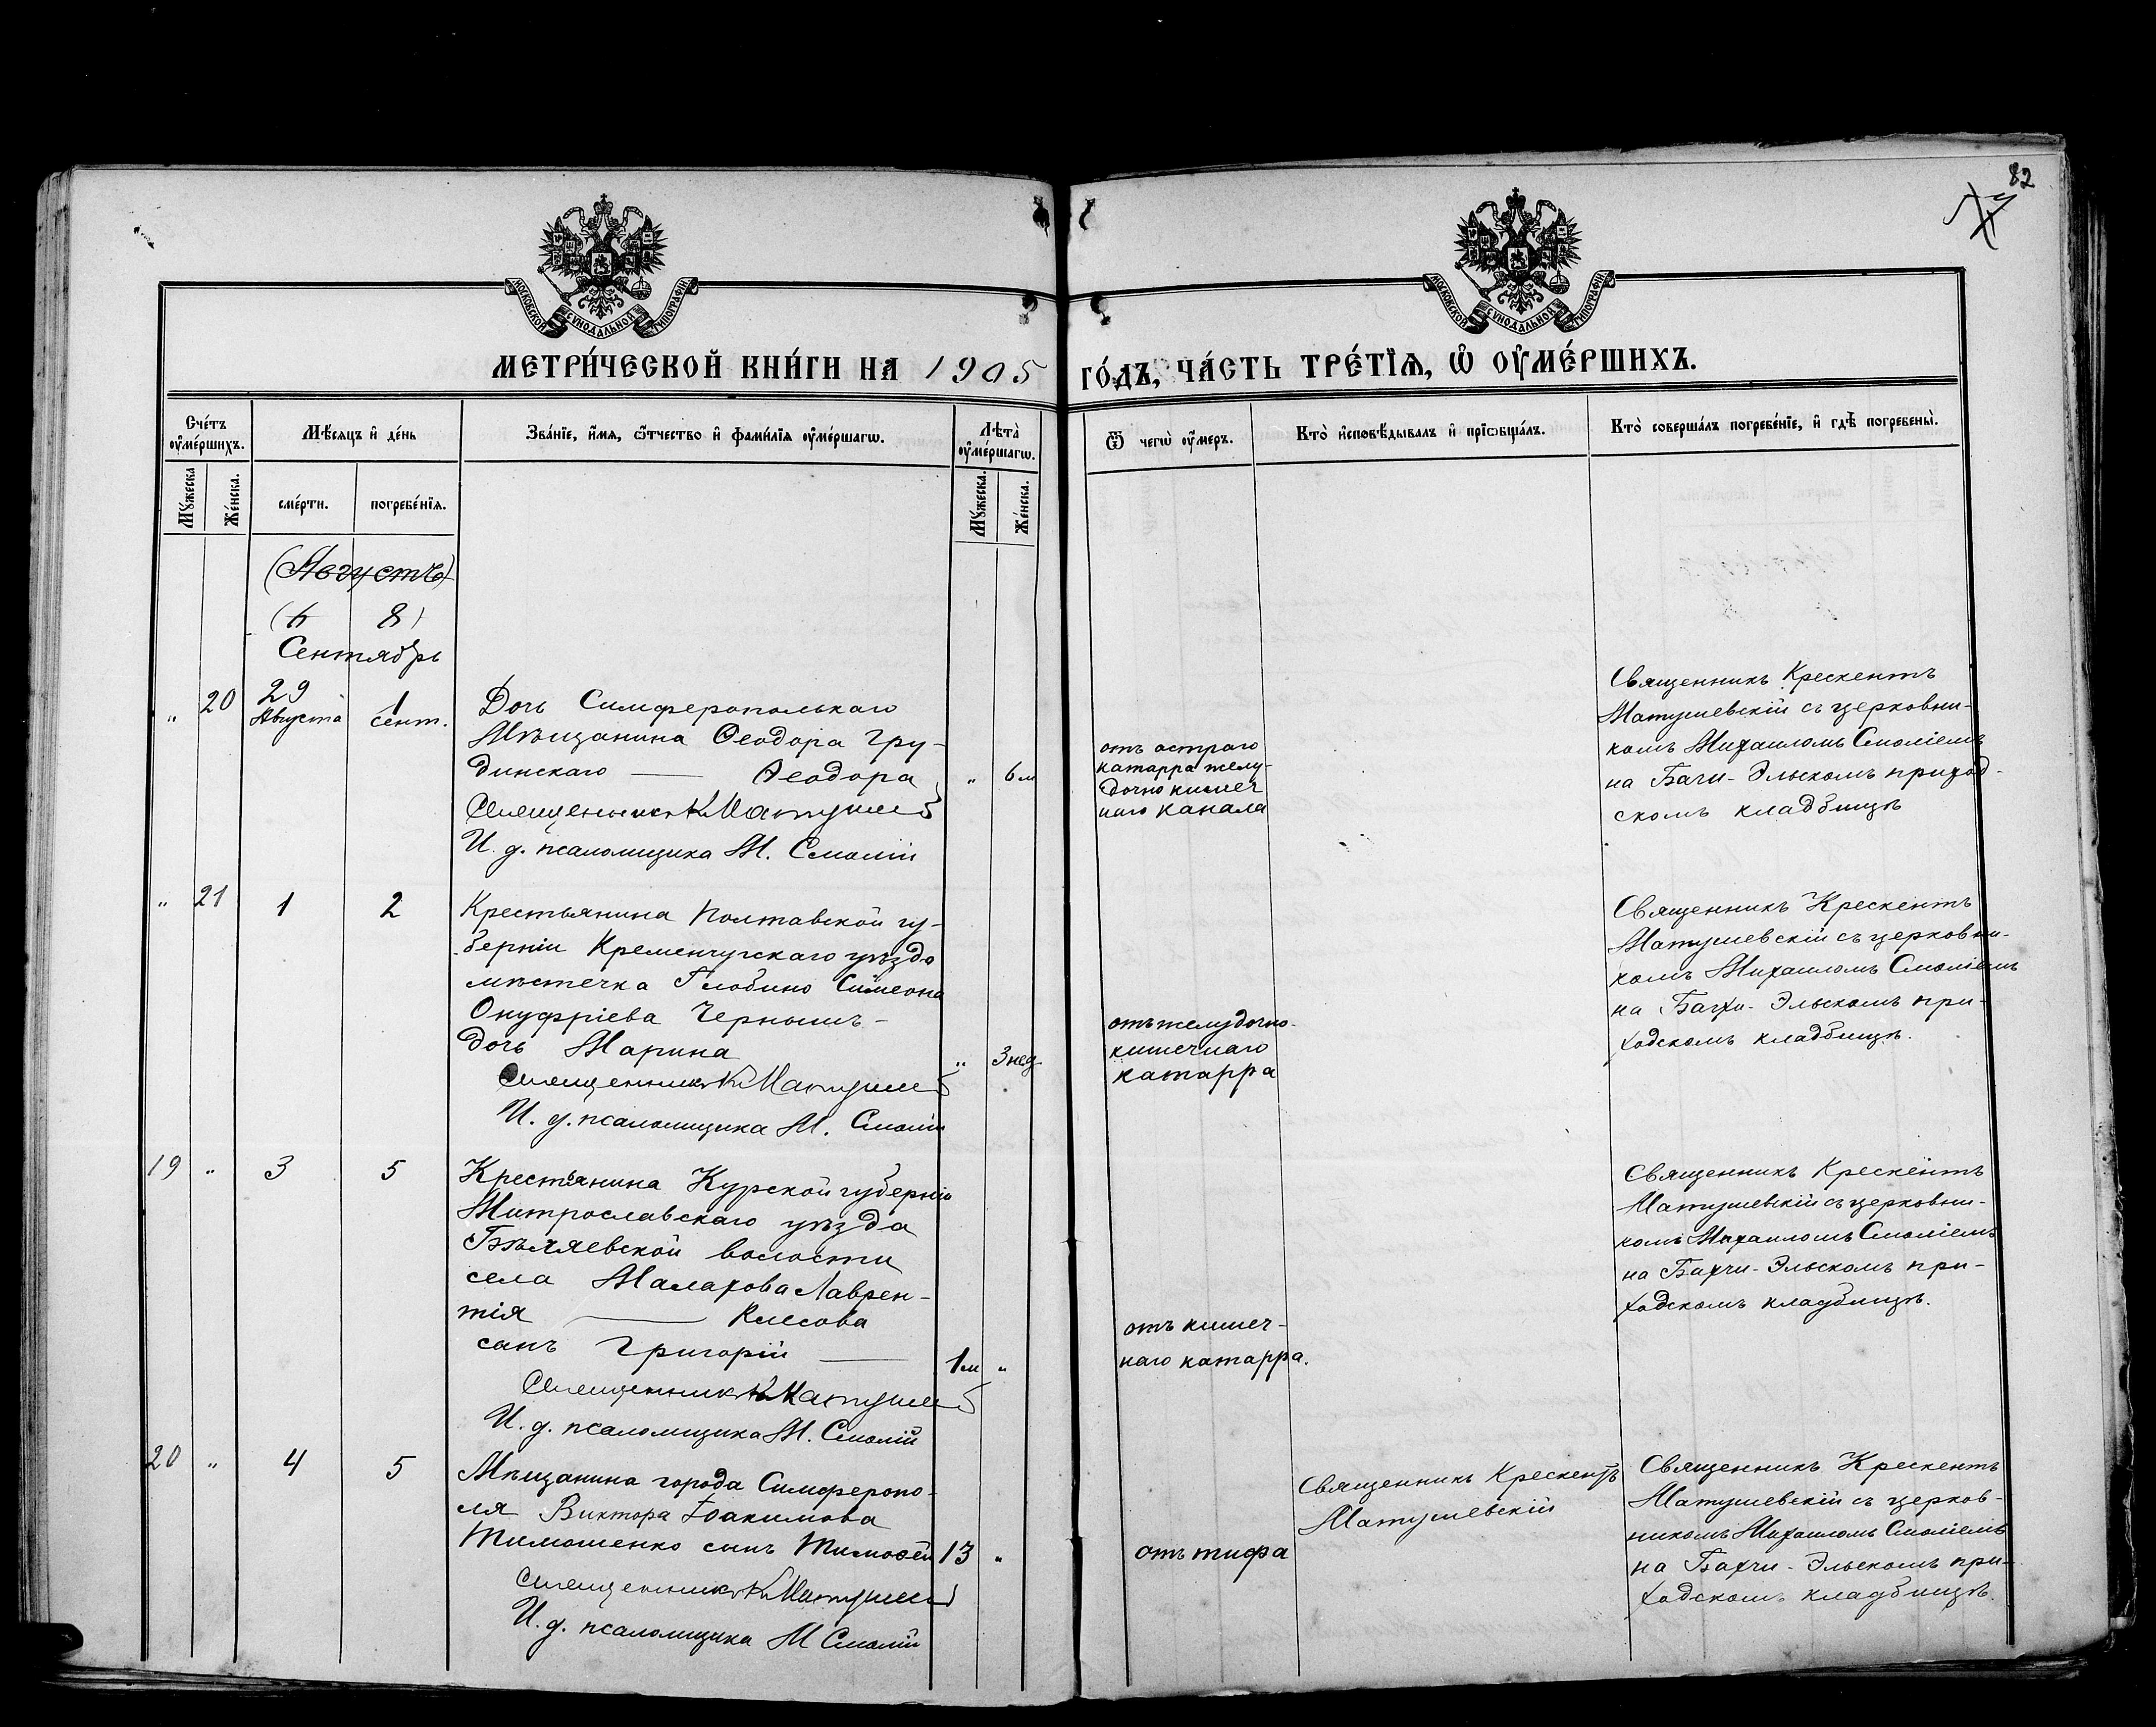 82
МОСКОВСКОЙ СѴНОДАЛЬНОЙ ТИПОГРАФІИ
МОСКОВСКОЙ СѴНОДАЛЬНОЙ ТИПОГРАФІИ
МЕТРИ́ЧЕСКОЙ КНИ́ГИ НА 1905
ГО́ДЪ, ЧА́СТЬ ТРЕ́ТЇѦ, Ѡ҆ ОУ҆МЕ́РШИХЪ.
Сче́тъ оу҆ме́ршихъ.
Мѣ́сяцъ и҆ де́нь
Зва́нїе, и҆́мя, ѻ҆́тчество и҆ фами́лїя оу҆ме́ршагѡ.
Лѣта̀ оу҆ме́ршагѡ.
Ѿ чегѡ̀ оу҆́меръ.
Кто̀ и҆сповѣ́дывалъ и҆ прїѡбща́лъ.
Кто̀ соверша́лъ погребе́нїе, и҆ гдѣ̀ погребены̀.
Мꙋ́жеска
Же́нска.
сме́рти.
погребе́нїя.
Мꙋ́жеска.
Же́нска.
(Августъ)
8)
Сентябрь
" 20
29 Августа
1 Сент.
Дочь Симферопольскаго
Мѣщанина Ѳеодора Гру-
динскаго — Ѳеодора
" 6 м
Священникъ К. Матушев
И. д. псаломщика М. Смолій
отъ остраго
катарра желу-
дочно кишеч
наго канала
Священникъ Крескентъ
Матушевскій съ церковни-
комъ Михаиломъ Смоліемъ
на Бахчи-Эльскомъ приход-
скомъ кладбищѣ
" 21
1
2
Крестьянина Полтавской гу-
берніи Кременчугскаго уѣзда
мѣстечка Глобино Симеона
Онуфріева Чернышъ-
дочь Марина
" 3 нед
Священникъ К. Матушев
И. д. псаломщика М. Смолій
отъ желудочно-
кишечнаго
катарра
Священникъ Крескентъ
Матушевскій съ церковни-
комъ Михаиломъ Смоліемъ
на Бахчи-Эльскомъ при-
ходскомъ кладбищѣ.
19 "
3
5
Крестьянина Курской губерніи
Митрославскаго уѣзда
Бѣляевской волости
села Малахова Лаврен-
тія — Клесова
сынъ Григорій —
1 м "
Священникъ К. Матушев
И. д. псаломщика М. Смолій
отъ кишеч-
наго катарра.
Священникъ Крескентъ
Матушевскій съ церковни-
комъ Михаиломъ Смоліемъ
на Бахчи-Эльскомъ при-
ходскомъ кладбищѣ.
20 "
4
5
Мѣщанина города Симферопо-
ля Виктора Іоакимова
Тимошенко сынъ Тимоѳей
13 "
Священникъ К. Матушев
И. д. псаломщика М Смолій
отъ тифа
Священникъ Крескентъ
Матушевскій
Священникъ Крескентъ
Матушевскій съ церков-
никомъ Михаиломъ Смоліемъ
на Бахчи-Эльскомъ при-
ходскомъ кладбищѣ.